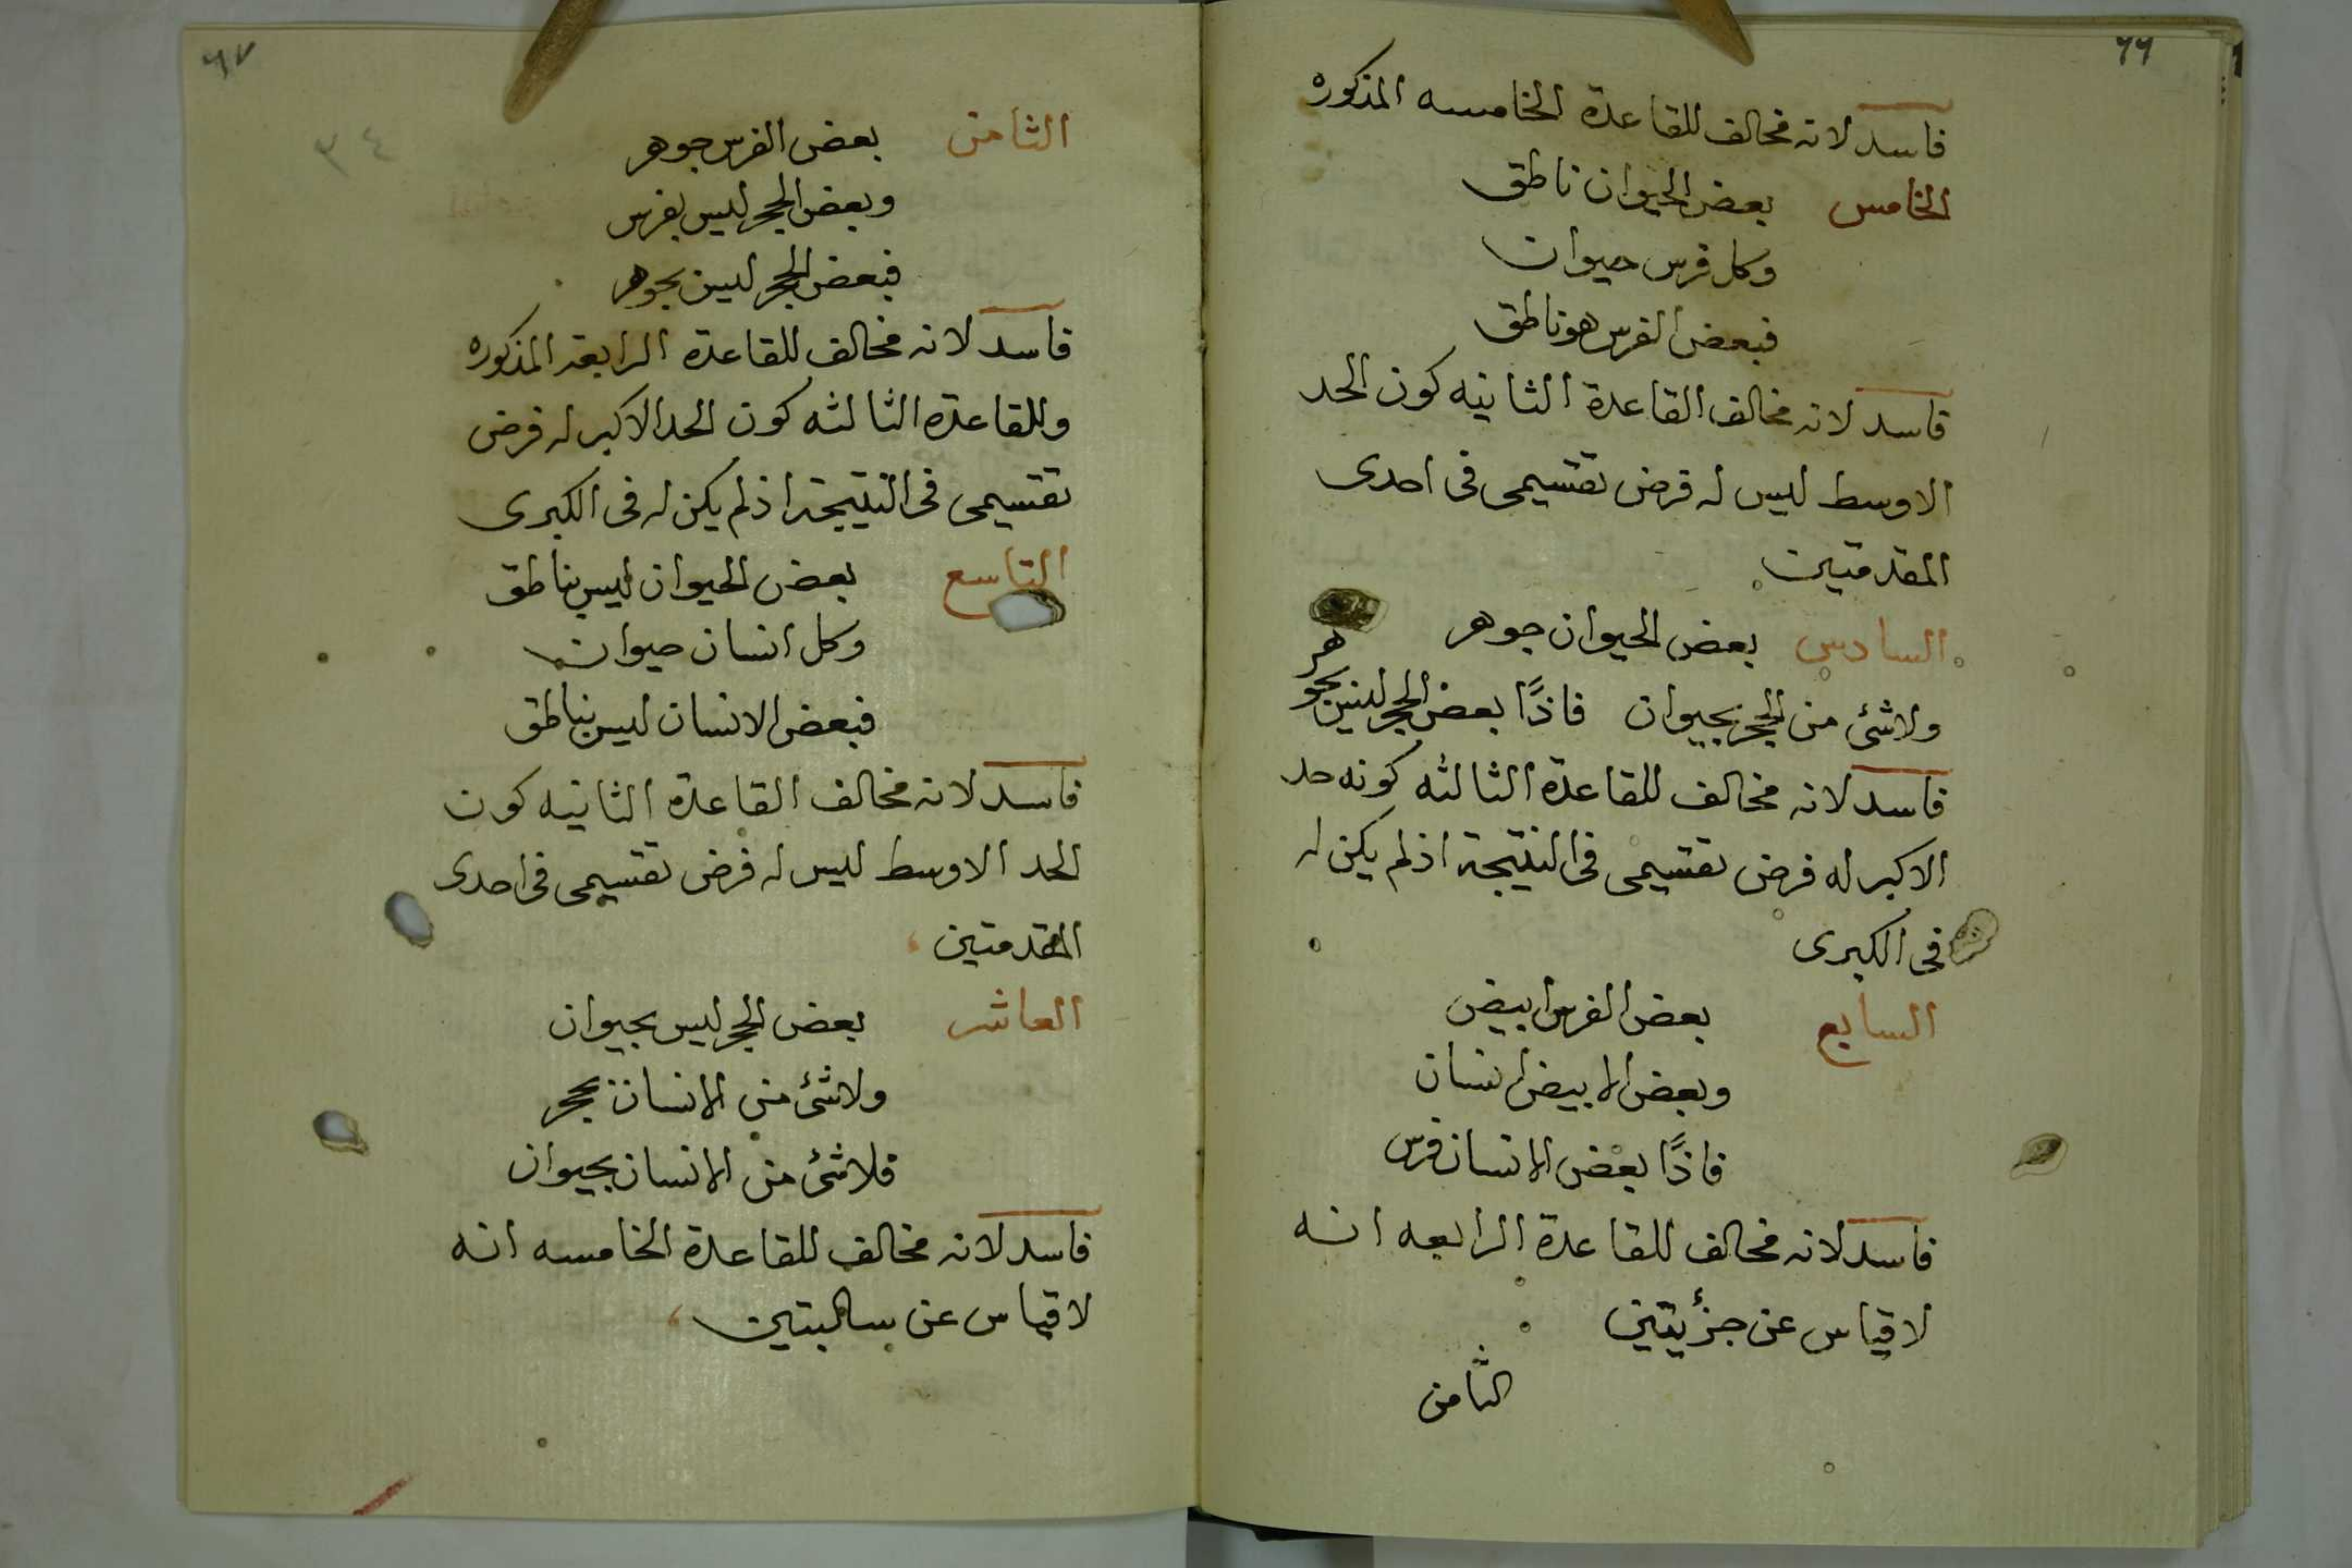 ٦٦
فاسد لانه مخالف للقاعدة الخامسه المذكوره
الخامس بعض الحيوان ناطق
وكل فرس حيوان
فبعض الفرس هو ناطق
فاسد لانه مخالف القاعدة الثانيه كون الحد
الاوسط ليس له فرض تقسيمى فى احدى
المقدمتين
السادس بعض الحيوان جوهر
ولاشئ من الحجر بحيوان فاذًا بعض الحجر ليس بجوهر
فاسد لانه مخالف للقاعدة الثالثه كونه حد
الاكبر له فرض تقسيمى فى النتيجة اذ لم يكن له
فى الكبرى
السابع بعض الفرس ابيض
وبعض الابيض انسان
فاذًا بعض الانسان فرس
فاسد لانه مخالف للقاعدة الرابعه انه
لا قياس عن جزئيتين
الثامن
٦٧
٣٤
الثامن بعض الفرس جوهر
وبعض الحجر ليس بفرس
فبعض الحجر ليس بجوهر
فاسد لانه مخالف للقاعدة الرابعة المذكوره
وللقاعدة الثالثه كون الحد الاكبر له فرض
تقسيمى فى النتيجة اذ لم يكن له فى الكبرى
التاسع بعض الحيوان ليس بناطق
وكل انسان حيوان
فبعض الانسان ليس بناطق
فاسد لانه مخالف القاعدة الثانيه كون
الحد الاوسط ليس له فرض تقسيمى فى احدى
المقدمتين
العاشر بعض الحجر ليس بحيوان
ولاشئ من الانسان بحجر
فلاشئ من الانسان بحيوان
فاسد لانه مخالف للقاعدة الخامسه انه
لا قياس عن سالبتين